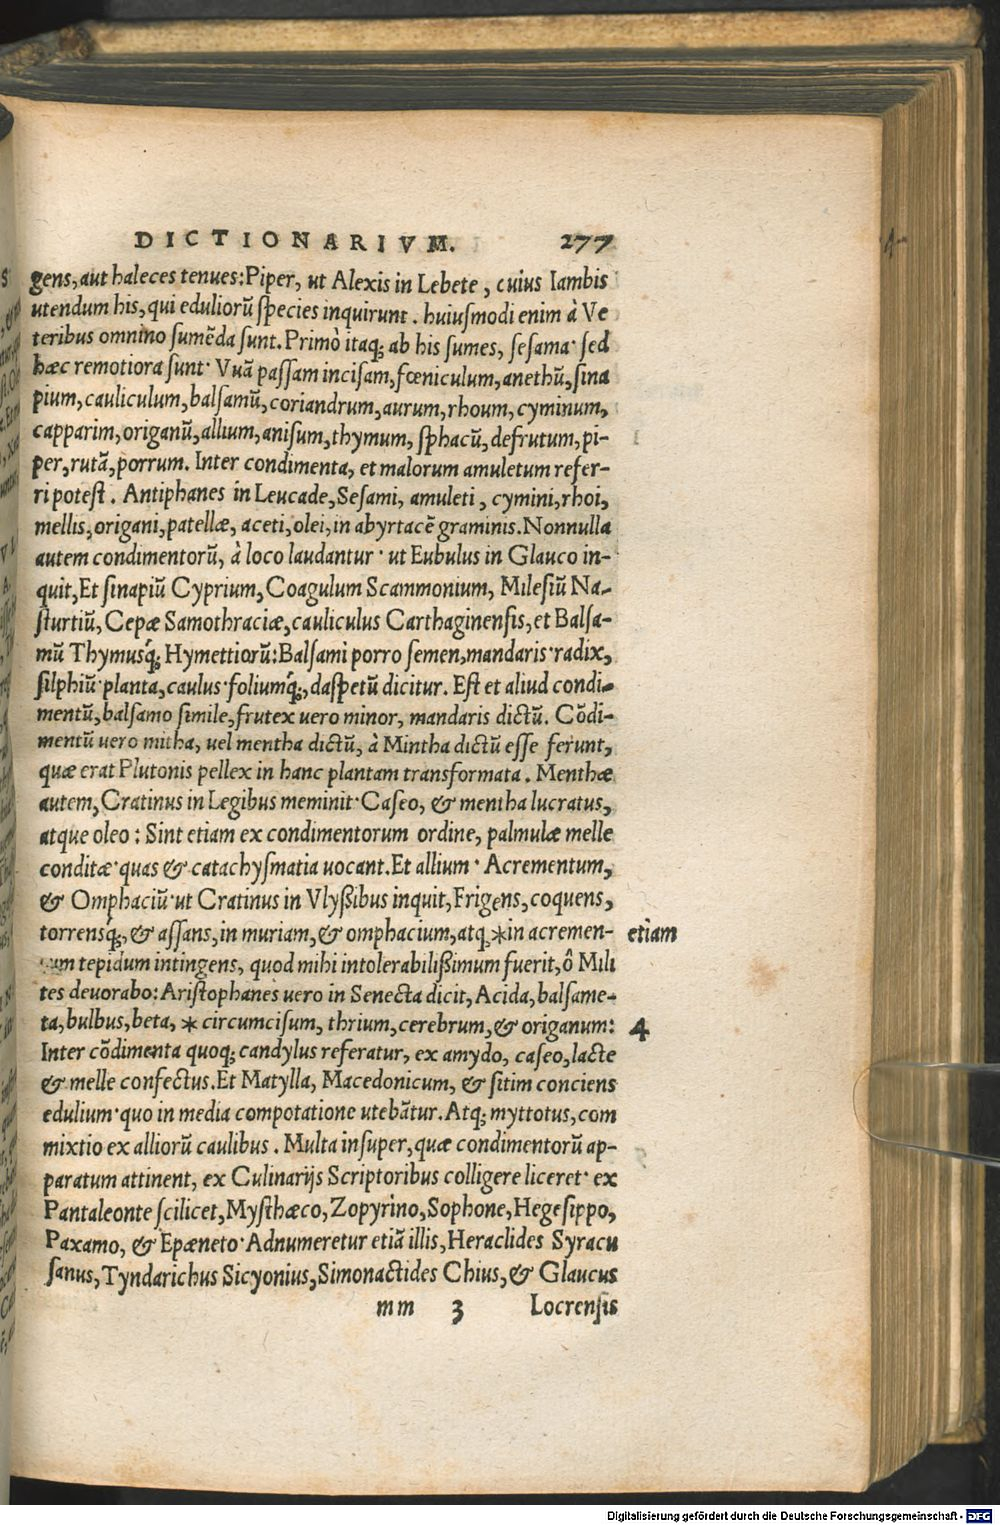 DICTIONARIVM. 277
gens, aut haleces tenues: Piper, ut Alexis in Lebete, cuius Iambis
utendum his, qui eduliorũ species inquirunt. huiusmodi enim à Ve
teribus omnino sumẽda sunt. Primò itaq; ab his sumes, sesama· sed
hæc remotiora sunt· Vuã passam incisam, fœniculum, anethũ, sina
pium, cauliculum, balsamũ, coriandrum, aurum, rhoum, cyminum,
capparim, origanũ, allium, anisum, thymum, sphacũ, defrutum, pi-
per, rutã, porrum. Inter condimenta, et malorum amuletum refer-
ri potest. Antiphanes in Leucade, Sesami, amuleti, cymini, rhoi,
mellis, origani, patellæ, aceti, olei, in abyrtacẽ graminis. Nonnulla
autem condimentorũ, à loco laudantur· ut Eubulus in Glauco in-
quit, Et sinapiũ Cyprium, Coagulum Scammonium, Milesiũ Na-
sturtiũ, Cepæ Samothraciæ, cauliculus Carthaginensis, et Balsa-
mũ Thymusq́; Hymettiorũ: Balsami porro semen, mandaris· radix,
silphiũ· planta, caulus· foliumq́;, daspetũ dicitur. Est et aliud condi-
mentũ, balsamo simile, frutex uero minor, mandaris dictũ. Cõdi-
mentũ uero mitha, uel mentha dictũ, à Mintha dictũ esse ferunt,
quæ erat Plutonis pellex in hanc plantam transformata. Menthæ
autem, Cratinus in Legibus meminit· Caseo, & mentha lucratus,
atque oleo: Sint etiam ex condimentorum ordine, palmulæ melle
conditæ· quas & catachysmatia uocant. Et allium· Acrementum,
& Omphaciũ· ut Cratinus in Vlyßibus inquit, Frigens, coquens,
torrensq́;, & assans, in muriam, & omphacium, atq; *in acremen- etiam
um tepidum intingens, quod mihi intolerabilißimum fuerit, ô Mili
tes deuorabo: Aristophanes uero in Senecta dicit, Acida, balsame-
ta, bulbus, beta, * circumcisum, thrium, cerebrum, & origanum: 4
Inter cõdimenta quoq; candylus referatur, ex amydo, caseo, lacte
& melle confectus. Et Matylla, Macedonicum, & sitim conciens
edulium· quo in media compotatione utebãtur. Atq; myttotus, com
mixtio ex alliorũ caulibus. Multa insuper, quæ condimentorũ ap-
paratum attinent, ex Culinarijs Scriptoribus colligere liceret· ex
Pantaleonte scilicet, Mysthæco, Zopyrino, Sophone, Hegesippo,
Paxamo, & Epæneto· Adnumeretur etiã illis, Heraclides Syracu
sanus, Tyndarichus Sicyonius, Simonactides Chius, & Glaucus
mm 3 Locrensis
Digitalisierung gefördert durch die Deutsche Forschungsgemeinschaft - DFG